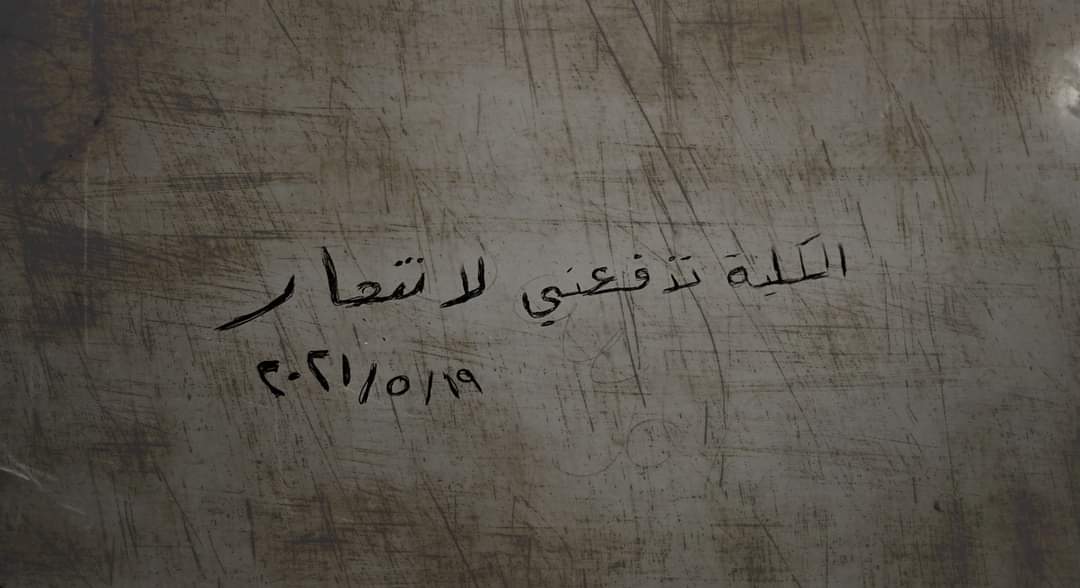 الكلية تدفعني لانتحار
٢٠٢١/٥/١٩